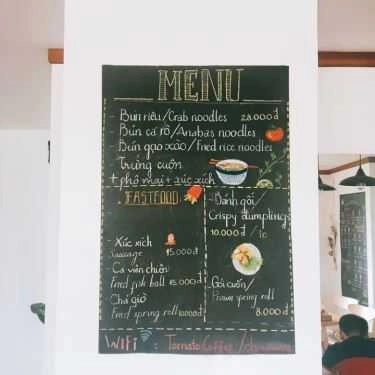 MENU
- Bún riêu/Crab noodles 28.000đ
- Bún cá rô/Anabas noodles
- Bún gạo xào/Fried rice noodles
Trứng cuộn
+ phô mai + xúc xích
FASTFOOD
- Xúc xích
Sausage 15.000đ
- Cá viên chiên
Fried fish ball 15.000đ
- Chả giò
Fried spring roll 10000đ
- Bánh gối/
Crispy dumplings
10.000đ / 1c
Gỏi cuốn/
Prawn spring roll
8.000đ
WIFI : Tomato Coffee /